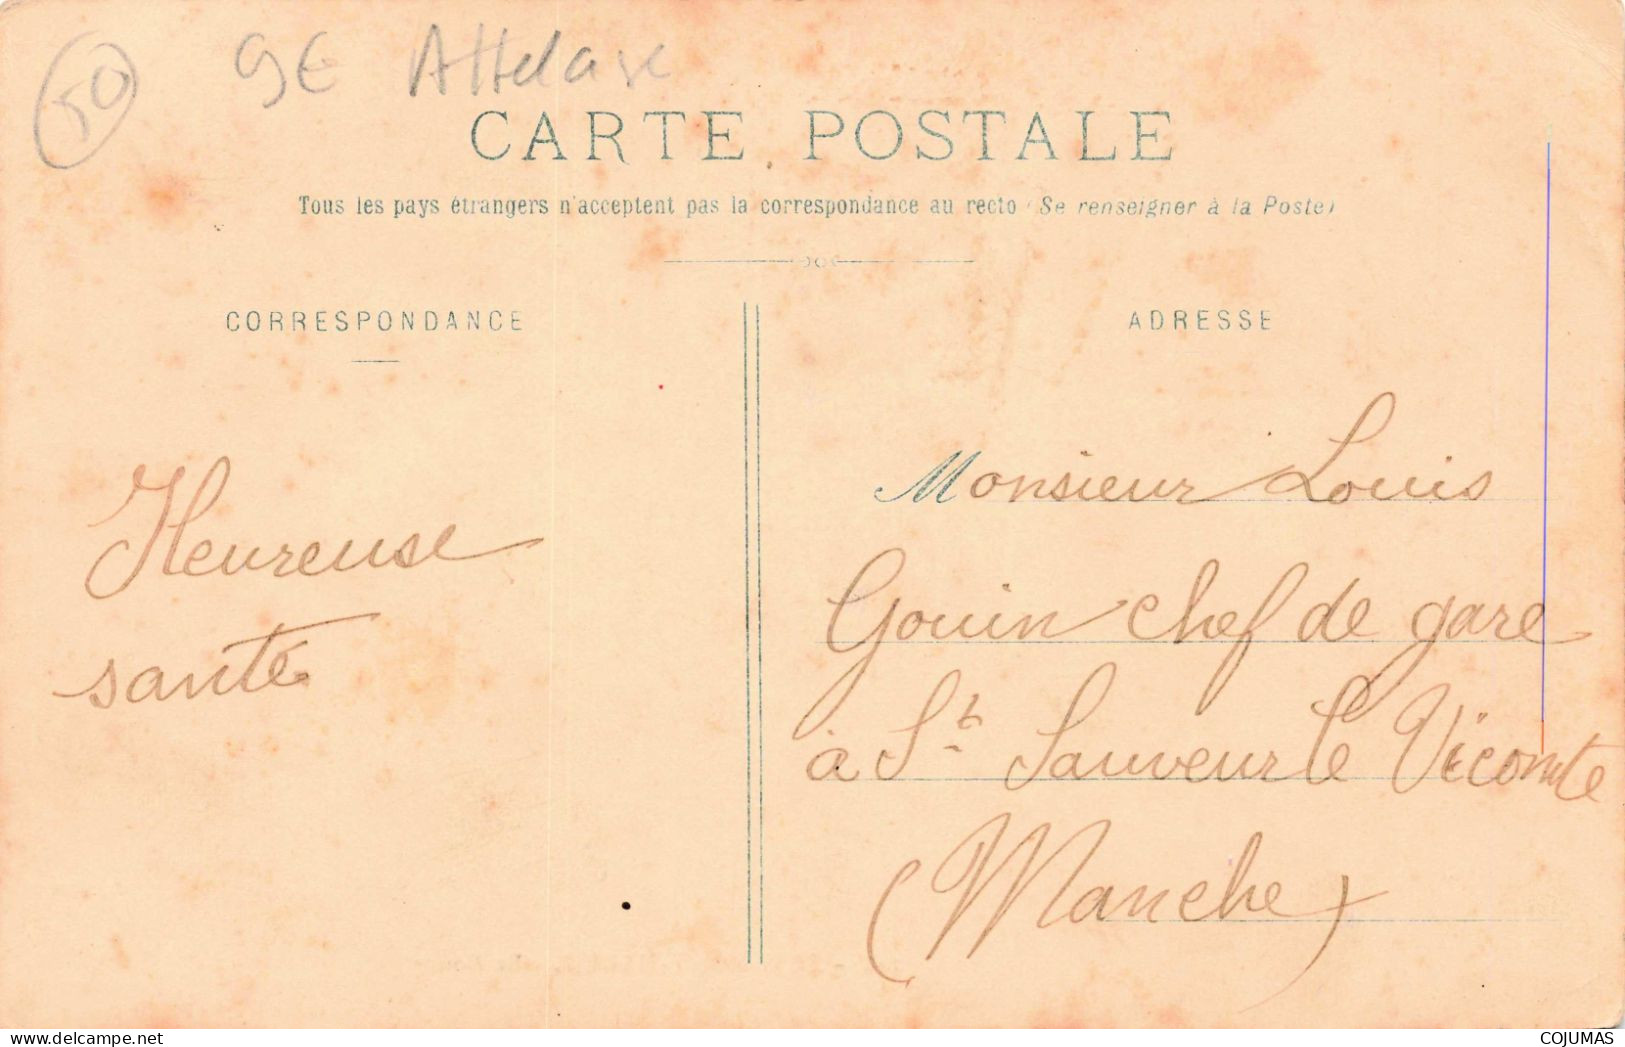 50 9€ Attelage
CARTE POSTALE
Tous les pays étrangers n'acceptent pas la correspondance au recto (Se renseigner à la Poste)
CORRESPONDANCE
Heureuse
santé
ADRESSE
Monsieur Louis
Gouin chef de gare
à St Sauveur le Vicomte
(Manche)
COJUMAS